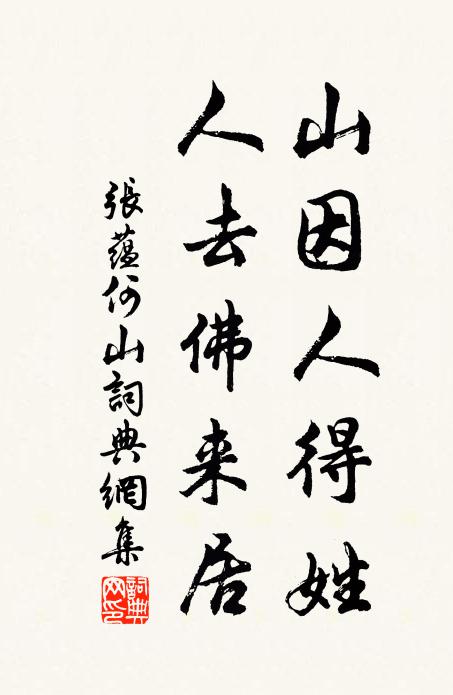 山因人得姓
人去佛来居
張蕴何山詞典網集
詞典網印